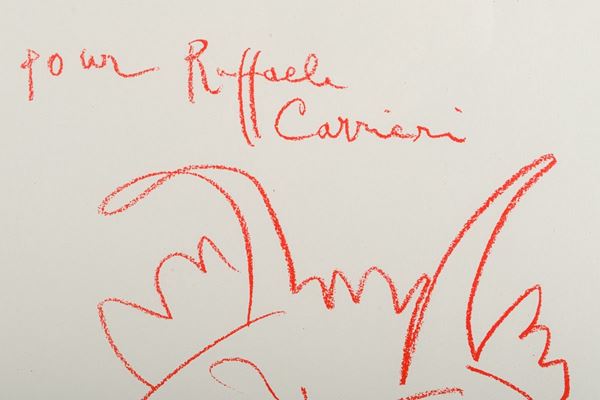 pour Raffaele
Carrieri